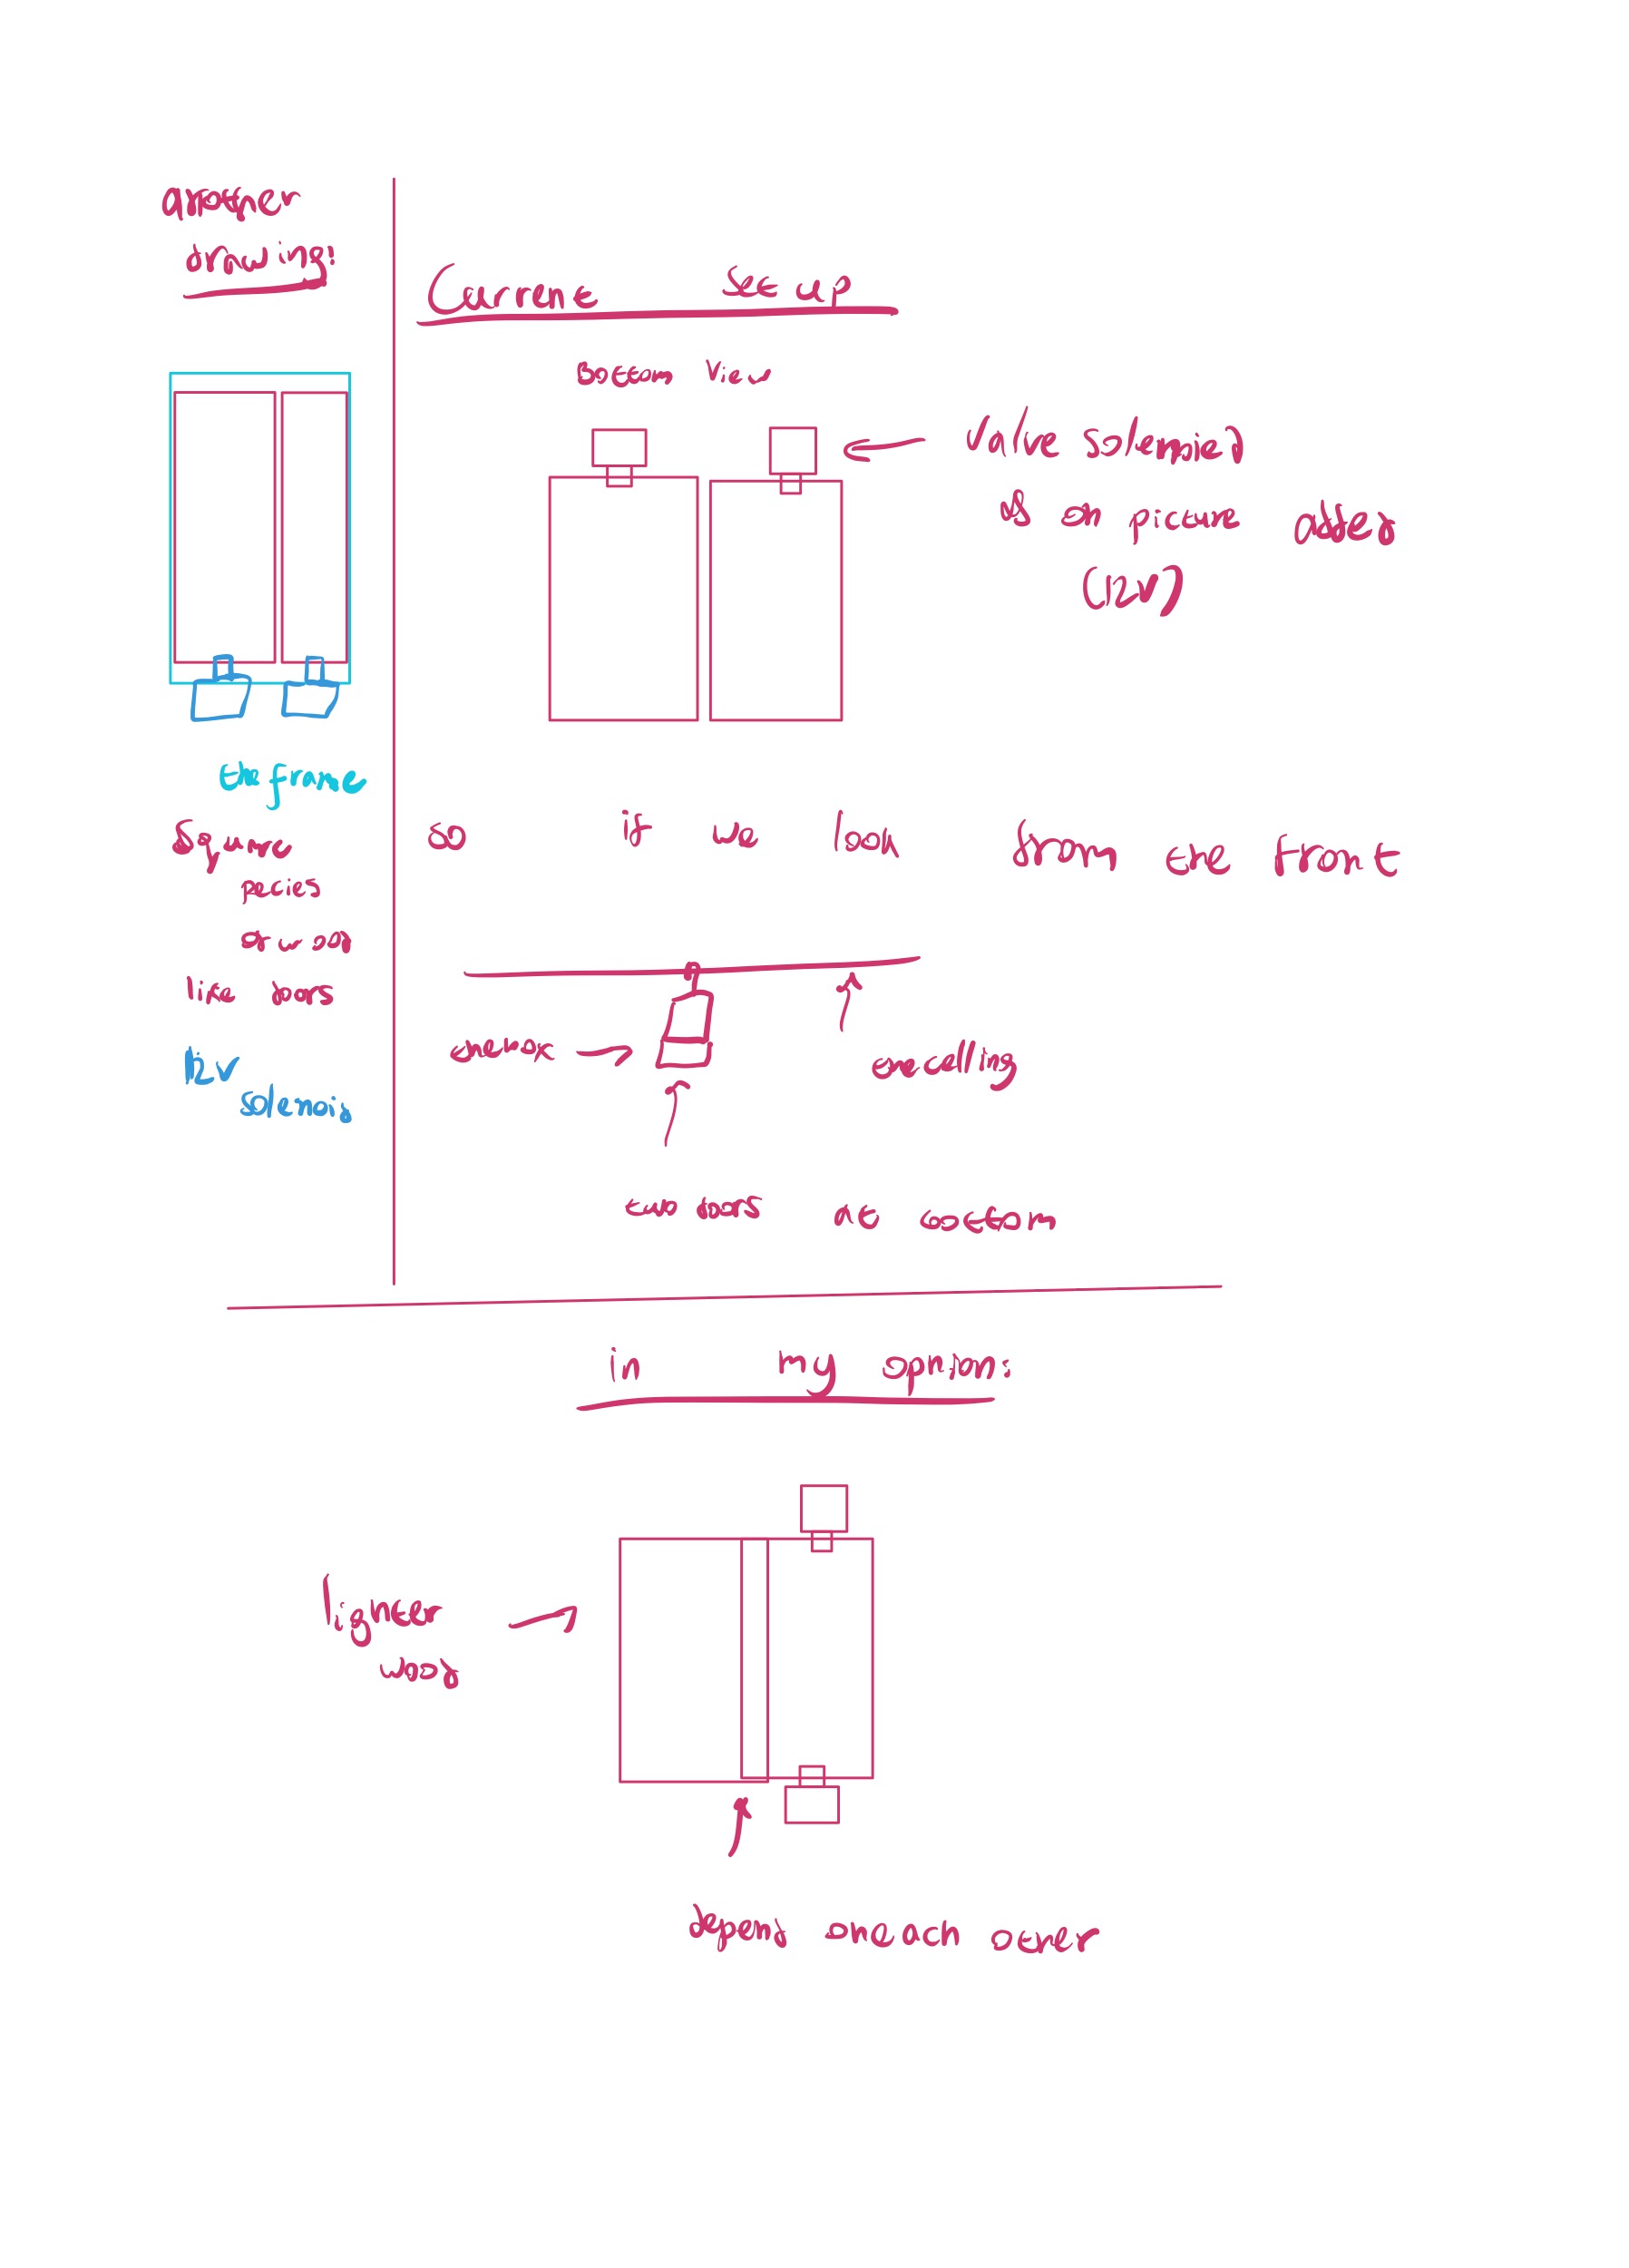 another
drawing:
the frame
Square
pecies
of wood
like doors
12v
solenoid
Current Setup
Bottom View
Valve solenoied
as on picture added
(12V)
so if we look from the front
the box
the celling
two doors at bottom
in my opnion:
lighter
wood
depend on each other